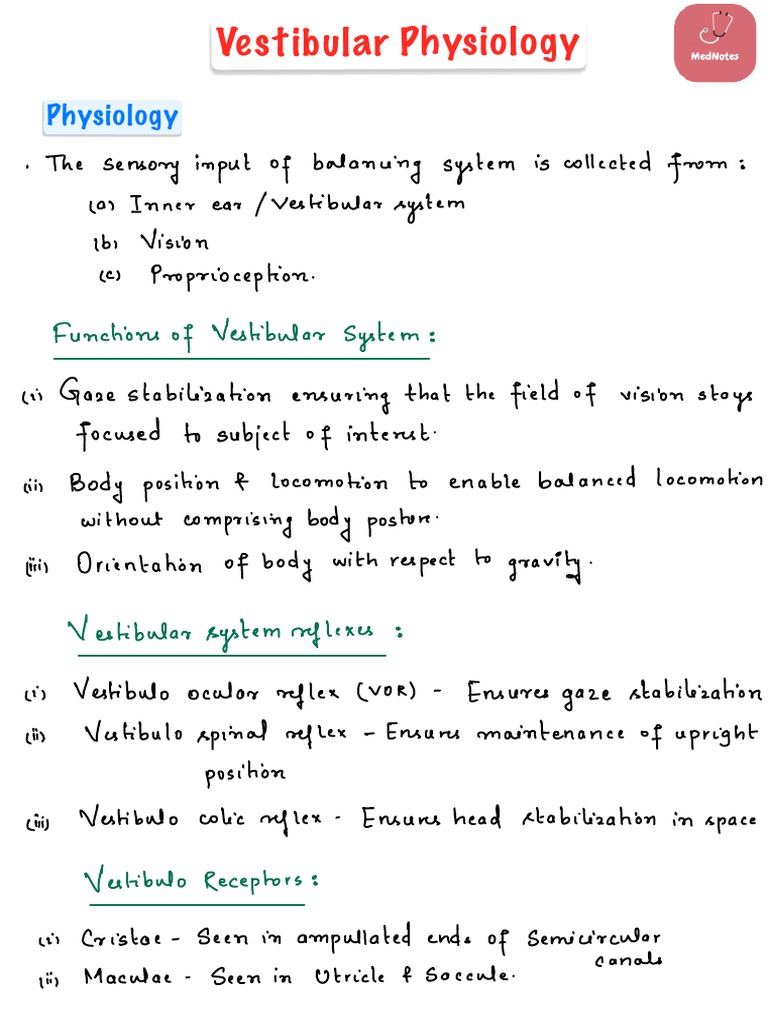 Vestibular Physiology
MedNotes
Physiology
. The sensory input of balancing system is collected from :
(a) Inner ear / Vestibular system
(b) Vision
(c) Proprioception.
Functions of Vestibular System :
(i) Gaze stabilization ensuring that the field of vision stays
focused to subject of interest.
(ii) Body position & locomotion to enable balanced locomotion
without comprising body posture.
(iii) Orientation of body with respect to gravity.
Vestibular system reflexes :
(i) Vestibulo ocular reflex (VOR) - Ensures gaze stabilization
(ii) Vestibulo spinal reflex - Ensures maintenance of upright
position
(iii) Vestibulo colic reflex - Ensures head stabilization in space
Vestibulo Receptors :
(i) Cristae - Seen in ampullated ends of Semicircular
canals
(ii) Maculae - Seen in Utricle & Saccule.